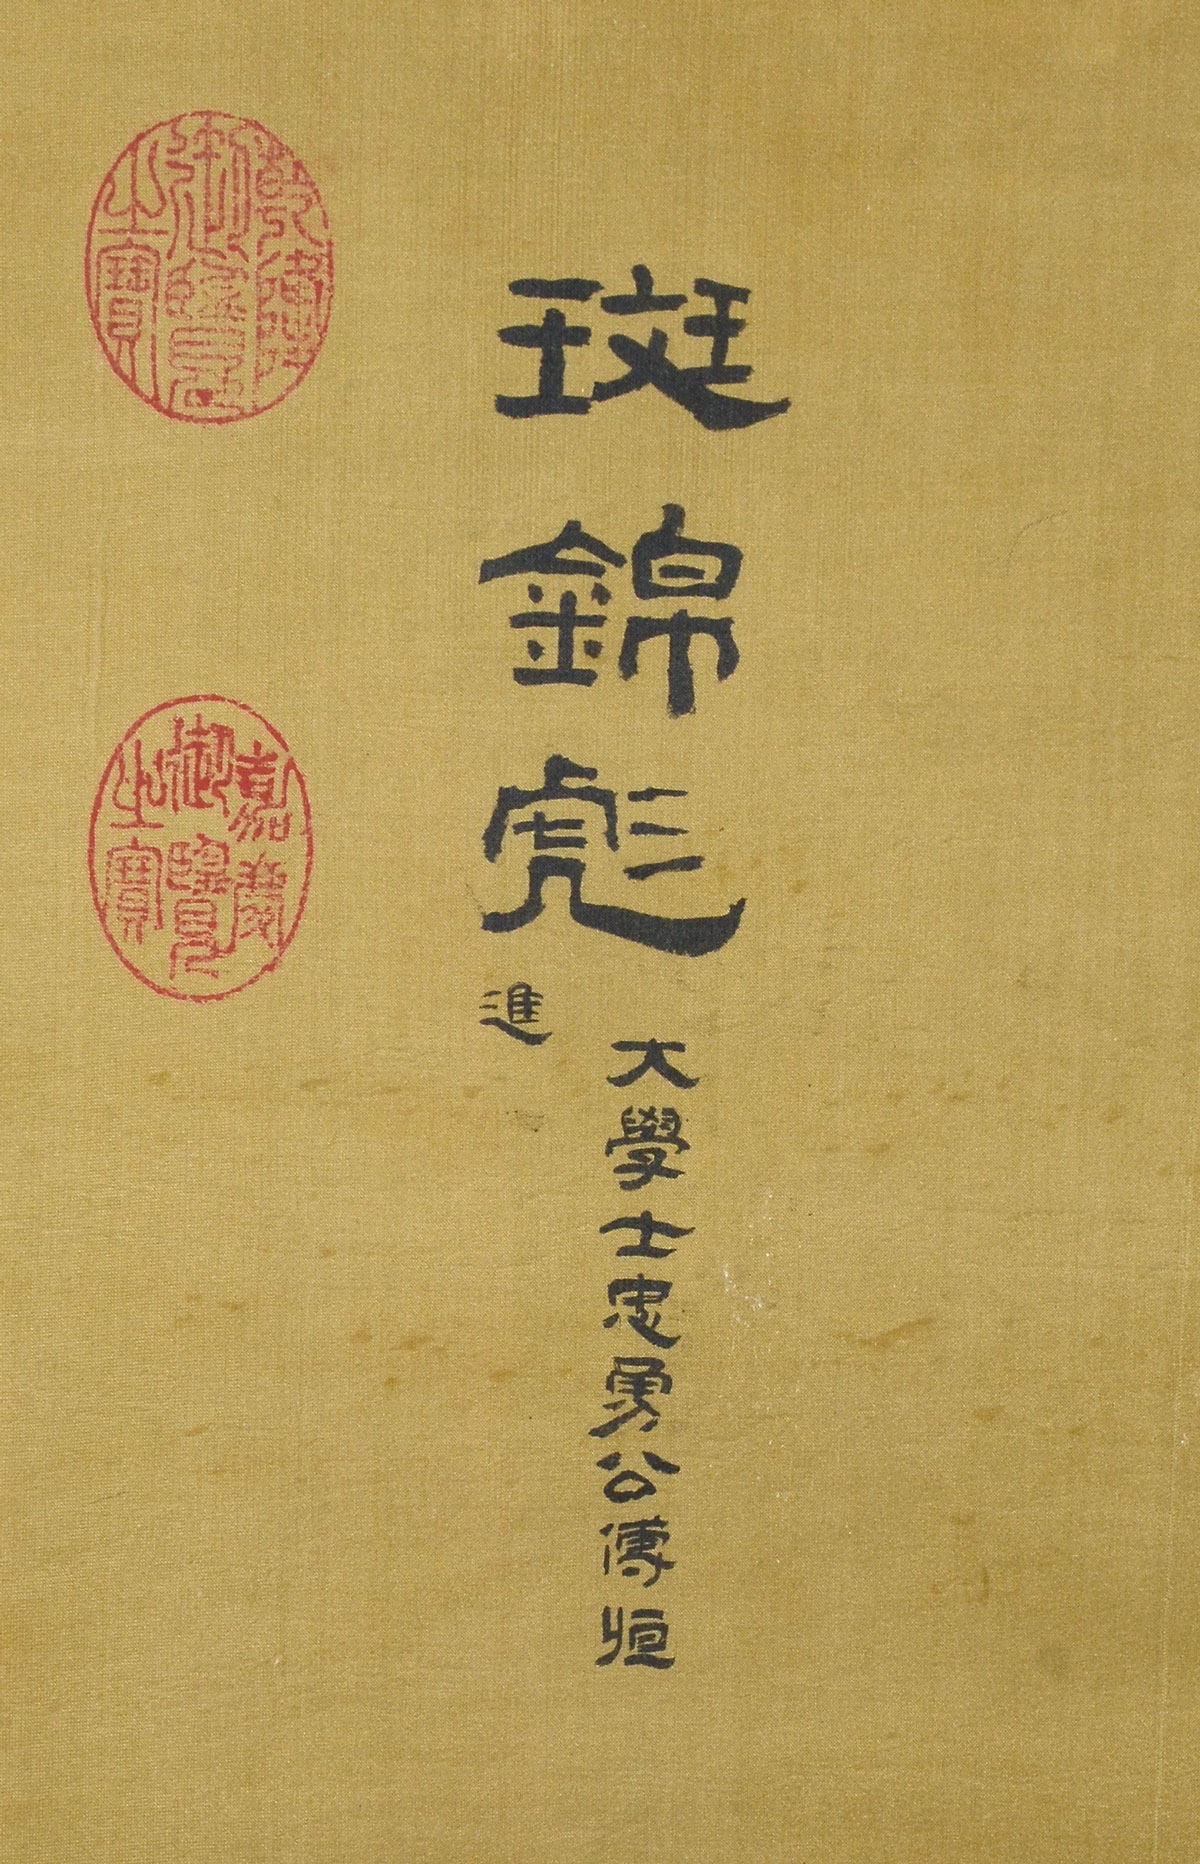 斑錦彪
大學士忠勇公傅恒
進
乾隆御覽之寶
嘉慶御覽之寶